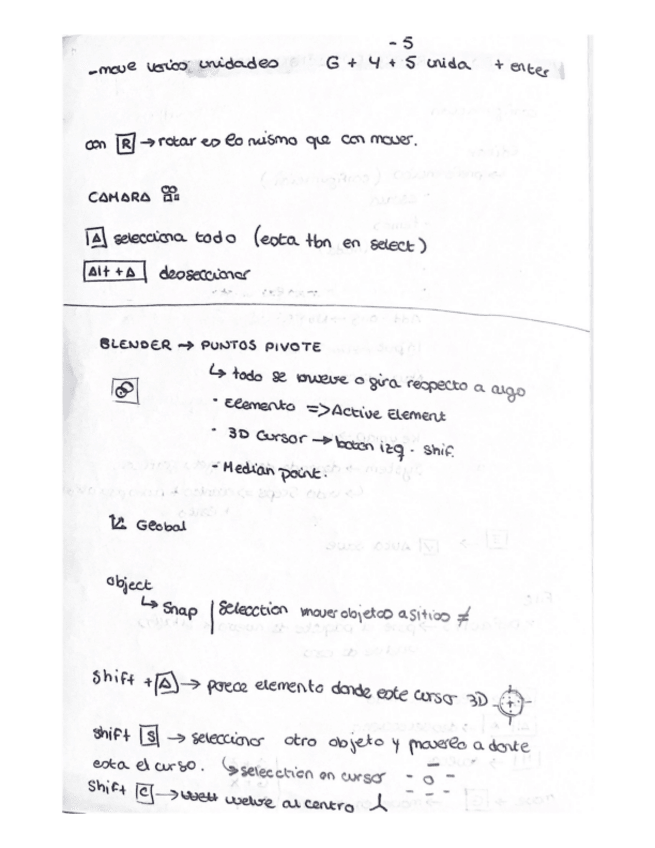 - 5
- move varios unidades G + Y + 5 unida + enter
con R → rotar es lo mismo que con mover.
CAMARA
A selecciona todo (esta tbn en select)
Alt + A deseseccionar
BLENDER → PUNTOS PIVOTE
↳ todo se mueve o gira respecto a algo
· Elemento => Active Element
· 3D cursor → boton izq · shif.
- Median point.
Global
object
↳ Snap | Selecction mover objetos a sitios ≠
Shift + A → parece elemento donde este cursor 3D
shift S → seleccionar otro objeto y moverlo a donte
esta el curso. ↳ selecction on cursor
Shift C → vuelve al centro